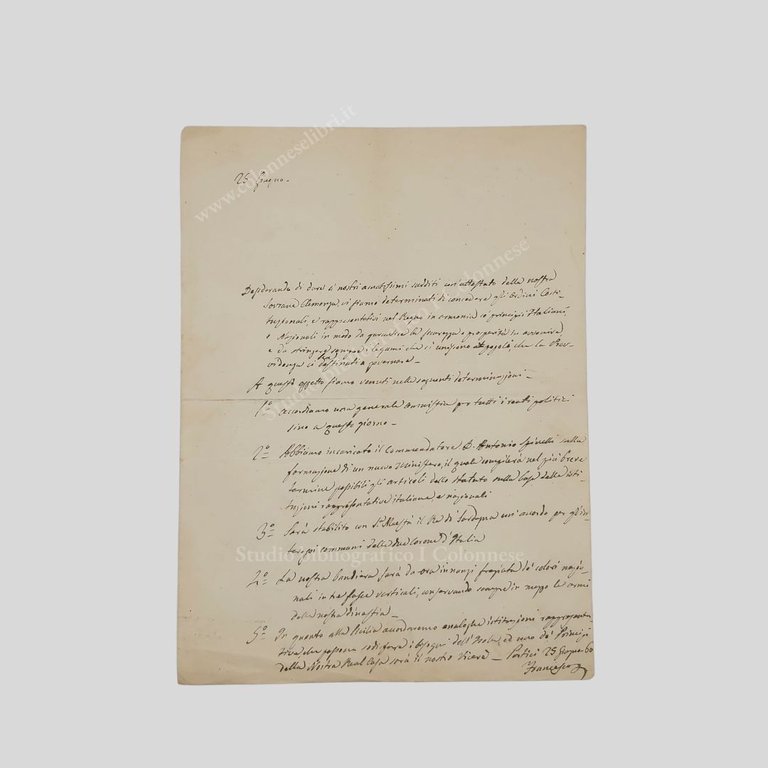 25 Giugno.
Desiderando di dare a' nostri amatissimi sudditi un'attestato della nostra
Sovrana Clemenza, ci siamo determinati di concedere gli ordini Costi-
tuzionali, e rappresentativi nel Regno in armonia co' principj Italiani
e Nazionali in modo da garentire la sicurezza e prosperità in avvenire
e da stringere sempre i legami che ci uniscono a' popoli, che la Prov-
videnza ci ha destinati a governare.
A questo oggetto siamo venuti nelle seguenti determinazioni.
1º accordiamo una generale amnistia per tutti i reati politici
sino a questo giorno.
2º Abbiamo incaricato il Commendatore D. Antonio Spinelli della
formazione di un nuovo Ministero, il quale compilerà nel più breve
termine possibile gli articoli dello Statuto sulla base delle isti-
tuzioni rappresentative italiane e nazionali
3º Sarà stabilito con S. Maestà il Re di Sardegna un'accordo per gl'in-
teressi comuni delle due Corone d'Italia
4º La nostra bandiera sarà da ora innanzi fregiata de' colori nazio-
nali in tre fasce verticali, conservando sempre in mezzo le armi
della nostra dinastia.
5º In quanto alla Sicilia accorderemo analoghe istituzioni rappresenta-
tive, che possano soddisfare i bisogni dell'Isola; ed uno de' Principi
della Nostra Real Casa sarà il nostro Vicerè. Portici 25 Giugno 60
Francesco
www.colonneselibri.it
Studio Bibliografico I Colonnese